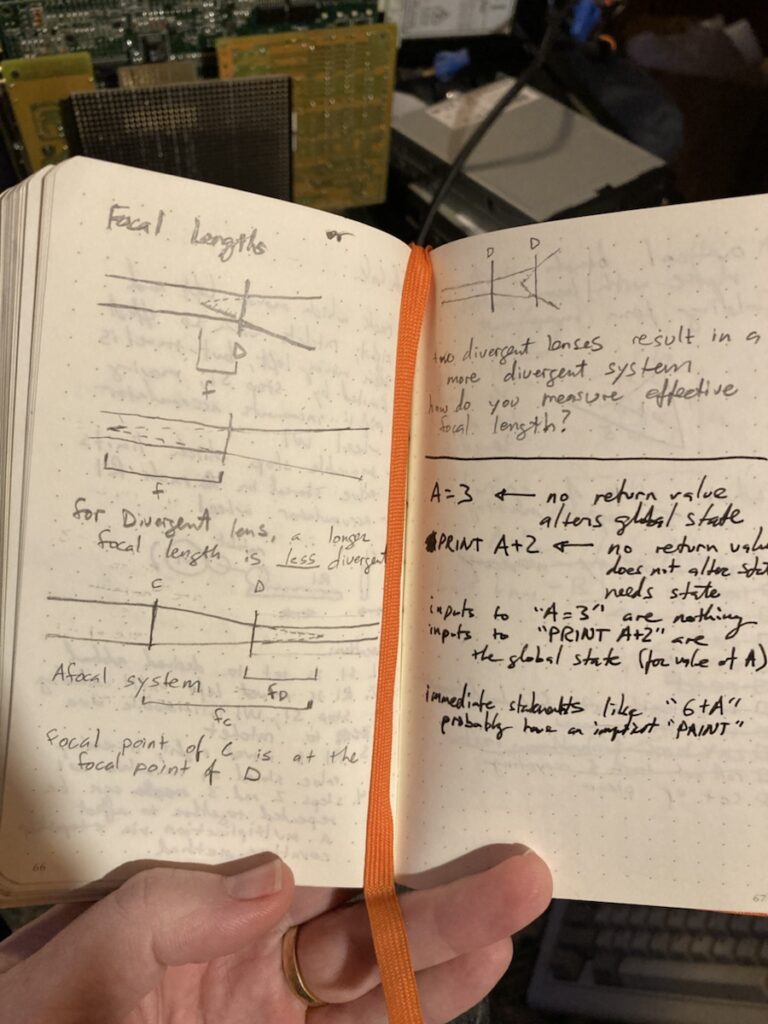 Focal Lengths
or
D
f
f
for Divergent lens, a longer
focal length is less divergent
C D
Afocal system
fD
fC
Focal point of C is at the
focal point of D
66
D D
two divergent lenses result in a
more divergent system
how do you measure effective
focal length?
A=3 ← no return value
alters global state
PRINT A+2 ← no return
does not alter
needs state
inputs to "A=3" are nothing
inputs to "PRINT A+2" are
the global state (for value of A)
immediate statements like "6+A"
probably have an implicit "PRINT"
67